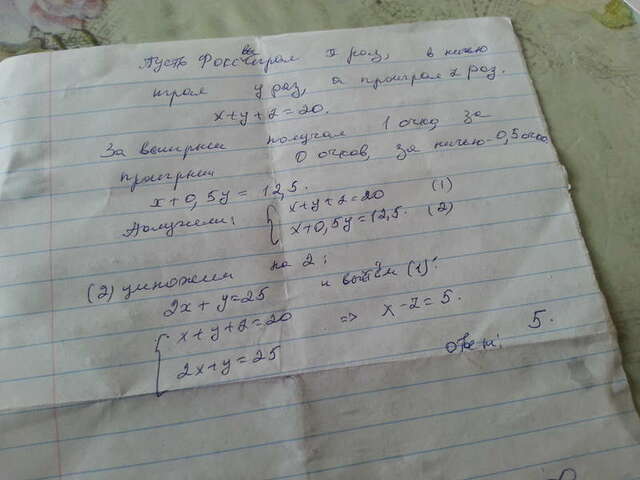 Пусть Фосс выиграл x раз, в ничью
играл y раз, а проиграл z раз.
x+y+z=20.
За выигрыш получал 1 очко, за
проигрыш 0 очков, за ничью-0,5 очка
x+0,5y=12,5.
Получили: { x+y+z=20 (1)
x+0,5y=12,5. (2)
(2) умножим на 2:
2x+y=25 и вычтем (1):
{ x+y+z=20 => x-z=5.
2x+y=25
Ответ: 5.